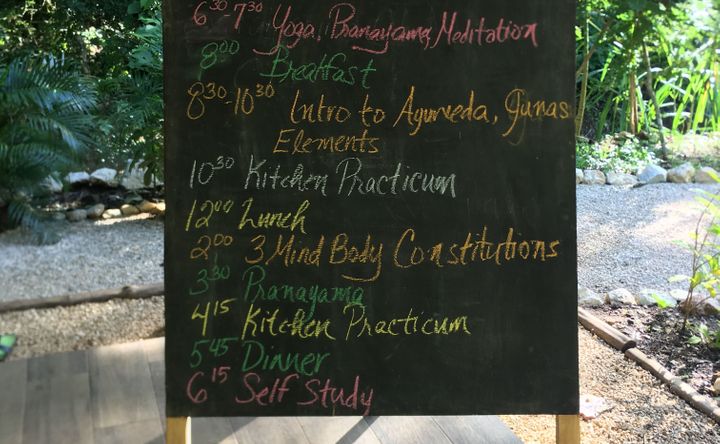 6:30-7:30 Yoga, Pranayama, Meditation
8:00 Breakfast
8:30-10:30 Intro to Ayurveda, Gunas
Elements
10:30 Kitchen Practicum
12:00 Lunch
2:00 3 Mind Body Constitutions
3:30 Pranayama
4:15 Kitchen Practicum
5:45 Dinner
6:15 Self Study